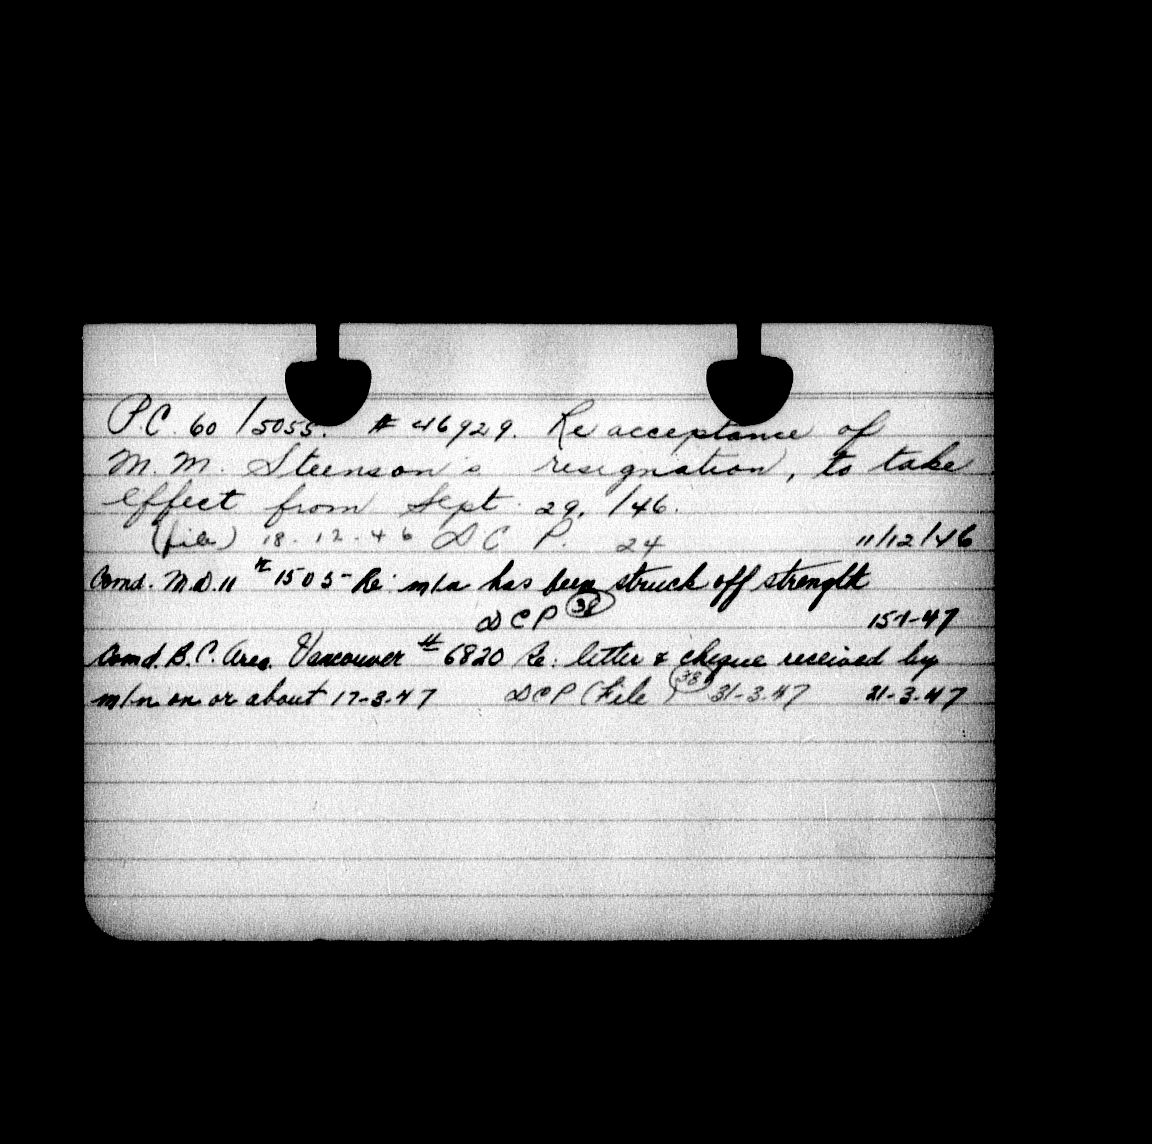 P.C. 60/5055. # 46929. Re acceptance of
M. M. Steenson's resignation, to take
effect from Sept. 29, /46.
(file) 18-12-46 D C P. 24 11/12/46
Comd. M.D. 11 # 1505- Re: m/n has been struck off strength
DCP 38 15-1-47
Comd. B.C. Area. Vancouver # 6820 Re: letter & cheque received by
m/n on or about 17-3-47 DCP (File) 38 31-3-47 21-3-47